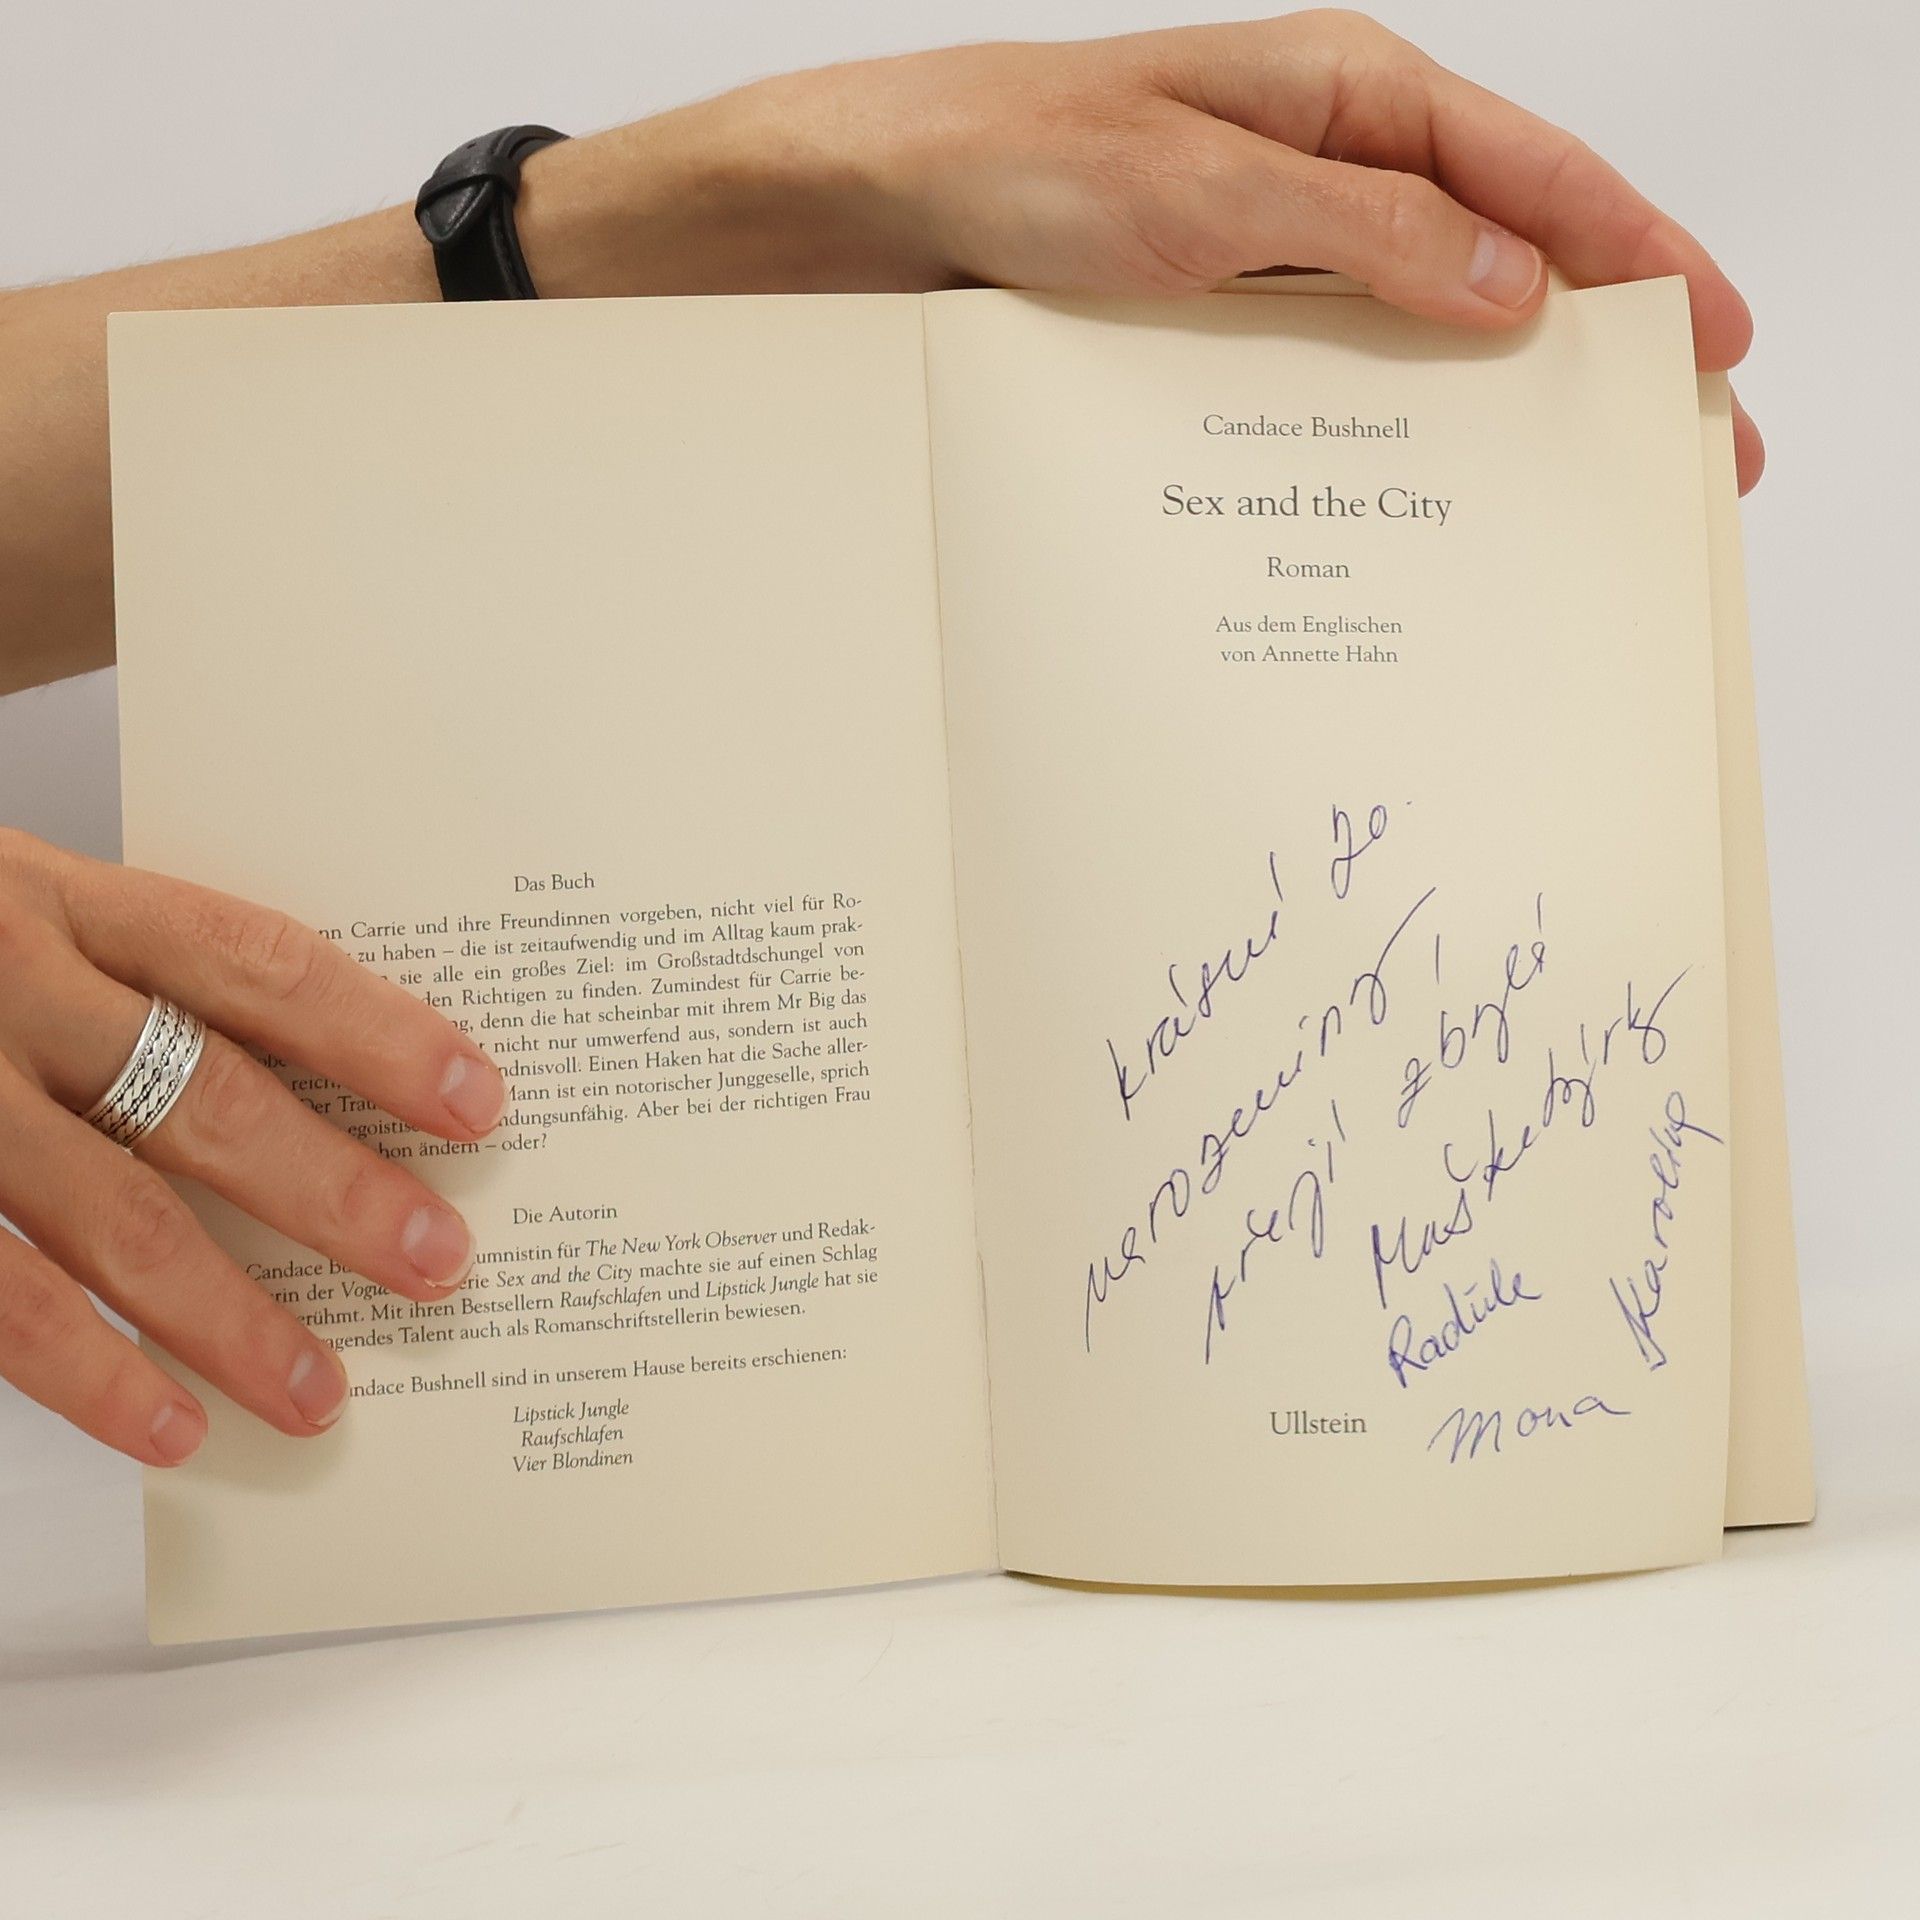 Das Buch
nn Carrie und ihre Freundinnen vorgeben, nicht viel für Ro-
zu haben – die ist zeitaufwendig und im Alltag kaum prak-
sie alle ein großes Ziel: im Großstadtdschungel von
den Richtigen zu finden. Zumindest für Carrie be-
ng, denn die hat scheinbar mit ihrem Mr Big das
nicht nur umwerfend aus, sondern ist auch
reich, ndnisvoll: Einen Haken hat die Sache aller-
Der Trau Mann ist ein notorischer Junggeselle, sprich
egoistisc ndungsunfähig. Aber bei der richtigen Frau
hon ändern – oder?
Die Autorin
Candace Bu umnistin für The New York Observer und Redak-
rin der Vogue erie Sex and the City machte sie auf einen Schlag
erühmt. Mit ihren Bestsellern Raufschlafen und Lipstick Jungle hat sie
ragendes Talent auch als Romanschriftstellerin bewiesen.
ndace Bushnell sind in unserem Hause bereits erschienen:
Lipstick Jungle
Raufschlafen
Vier Blondinen
Candace Bushnell
Sex and the City
Roman
Aus dem Englischen
von Annette Hahn
krásné 20.
narozeniny
přejí zbylé
Radule
Mona
Ullstein